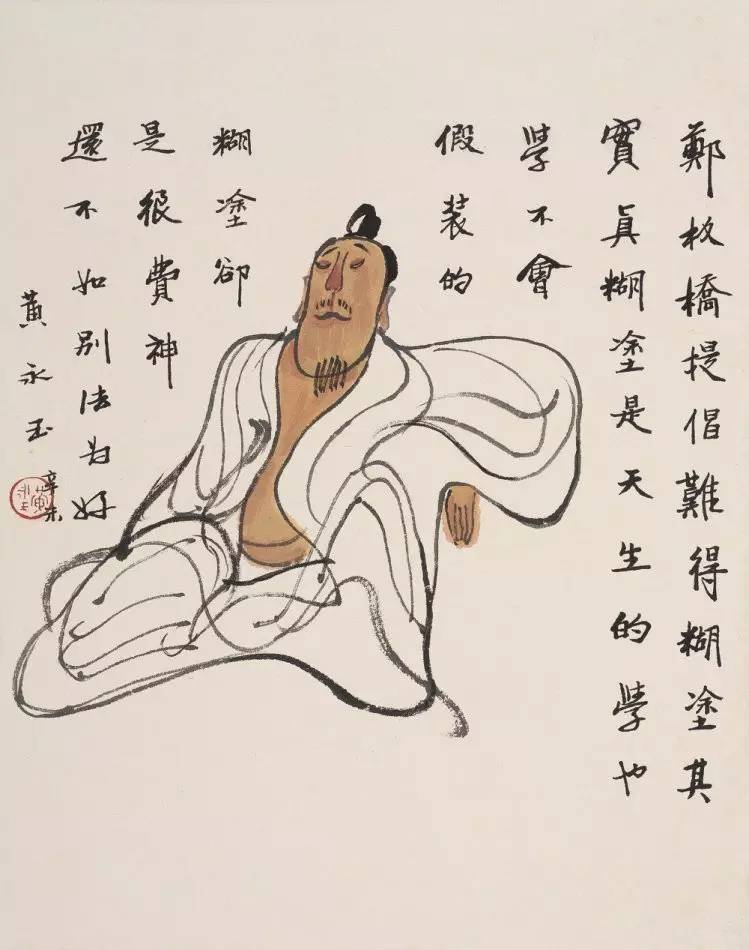 鄭板橋提倡難得糊塗其
實眞糊塗是天生的學也
學不會
假装的
糊塗卻
是很費神
還不如別法为好
黄永玉
辛未